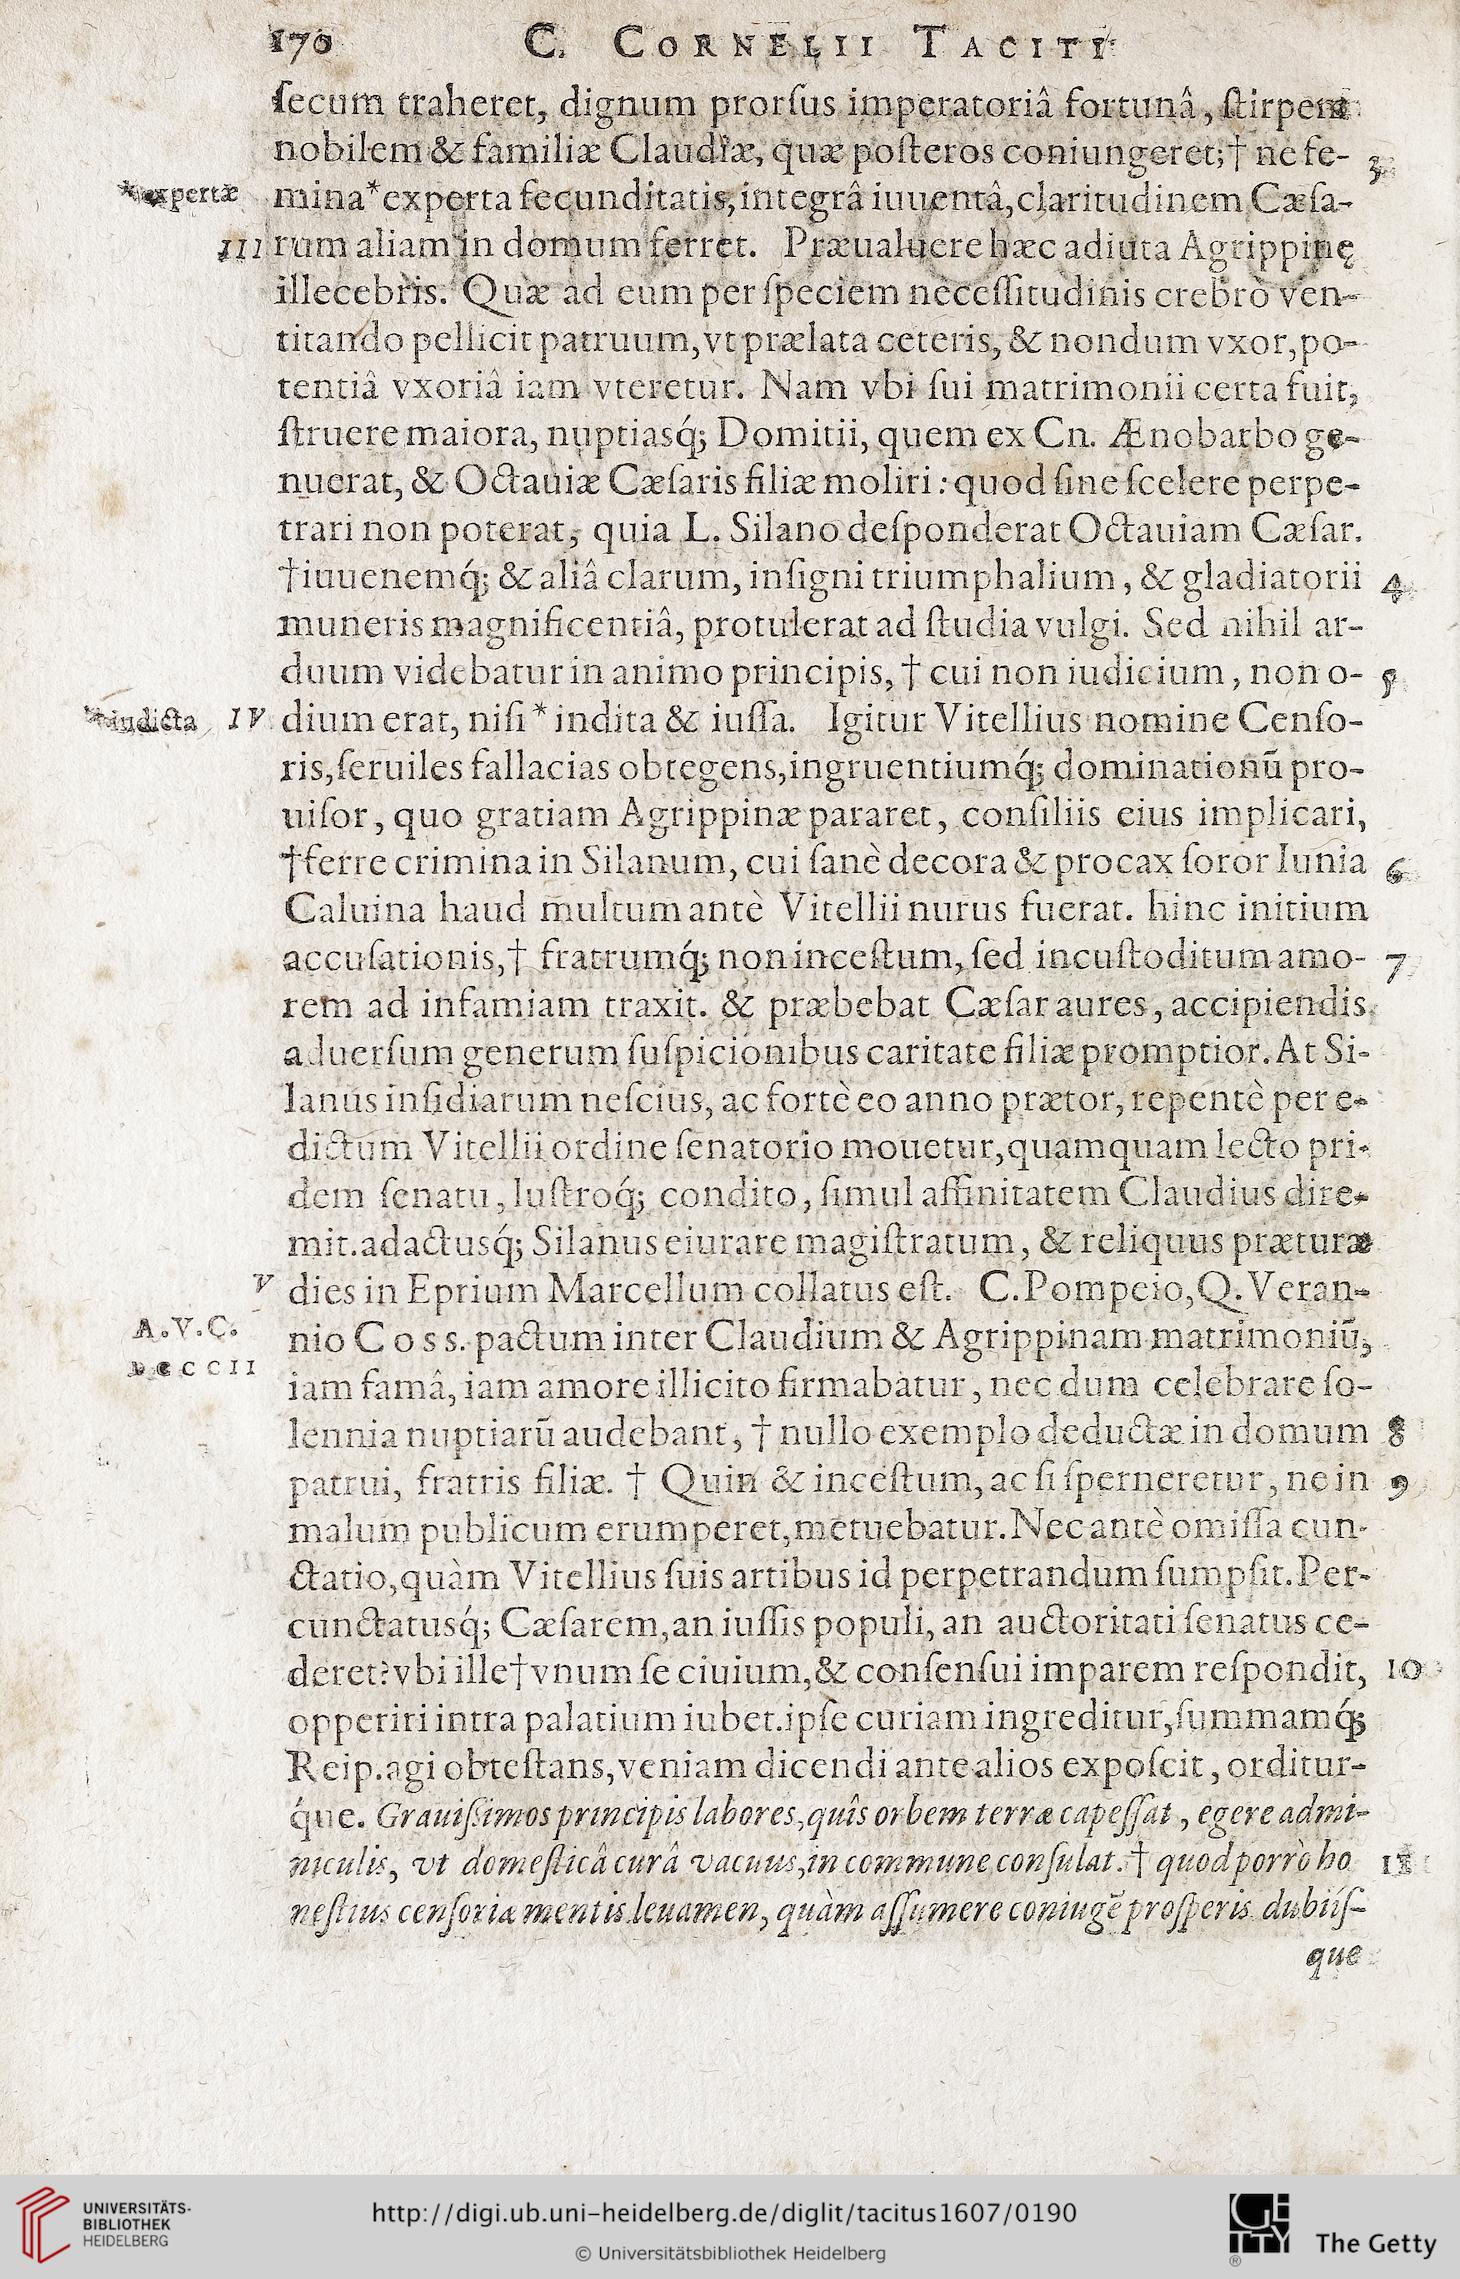 170 C. CORNELII TACITI
ſecum traheret, dignum prorſus imperatoriâ fortunâ, ſtirpem
nobilem & familiæ Claudiæ, quæ poſteros coniungeret; † ne fe- 3
*expertæ mina * experta fecunditatis, integrâ iuuentâ, claritudinem Cæſa-
III rum aliam in domum ferret. Præualuere hæc adiuta Agrippinę
illecebris. Quæ ad eum per ſpeciem neceſſitudinis crebrò ven-
titando pellicit patruum, vt prælata ceteris, & nondum vxor, po-
tentiâ vxoriâ iam vteretur. Nam vbi ſui matrimonii certa fuit,
ſtruere maiora, nuptiasq́; Domitii, quem ex Cn. Ænobarbo ge-
nuerat, & Octauiæ Cæſaris filiæ moliri: quod ſine ſcelere perpe-
trari non poterat, quia L. Silano deſponderat Octauiam Cæſar.
† iuuenemq́; & aliâ clarum, inſigni triumphalium, & gladiatorii 4
muneris magnificentiâ, protulerat ad ſtudia vulgi. Sed nihil ar-
duum videbatur in animo principis, † cui non iudicium, non o- 5
*indicta IV dium erat, niſi * indita & iuſſa. Igitur Vitellius nomine Cenſo-
ris, ſeruiles fallacias obtegens, ingruentiumq́; dominationū pro-
uiſor, quo gratiam Agrippinæ pararet, conſiliis eius implicari,
† ferre crimina in Silanum, cui ſanè decora & procax ſoror Iunia 6
Caluina haud multum antè Vitellii nurus fuerat. hinc initium
accuſationis, † fratrumq́; non inceſtum, ſed incuſtoditum amo- 7
rem ad infamiam traxit. & præbebat Cæſar aures, accipiendis
aduerſum generum ſuſpicionibus caritate filiæ promptior. At Si-
lanus inſidiarum neſcius, ac fortè eo anno prætor, repentè per e-
dictum Vitellii ordine ſenatorio mouetur, quamquam lecto pri-
dem ſenatu, luſtroq́; condito, ſimul affinitatem Claudius dire-
mit. adactusq́; Silanus eiurare magiſtratum, & reliquus præturæ
V dies in Eprium Marcellum collatus eſt. C. Pompeio, Q. Veran-
A.V.C. nio Coss. pactum inter Claudium & Agrippinam matrimoniū,
DCCCII iam famâ, iam amore illicito firmabatur, nec dum celebrare ſo-
lennia nuptiarū audebant, † nullo exemplo deductæ in domum 8
patrui, fratris filiæ. † Quin & inceſtum, ac ſi ſperneretur, ne in 9
malum publicum erumperet, metuebatur. Nec antè omiſſa cun-
ctatio, quàm Vitellius ſuis artibus id perpetrandum ſumpſit. Per-
cunctatusq́; Cæſarem, an iuſſis populi, an auctoritati ſenatus ce-
deret? vbi ille † vnum ſe ciuium, & conſenſui imparem reſpondit, 10
opperiri intra palatium iubet. ipſe curiam ingreditur, ſummamq́;
Reip. agi obteſtans, veniam dicendi ante alios expoſcit, orditur-
q́ue. Grauiſſimos principis labores, quîs orbem terræ capeſſat, egere admi-
niculis, vt domeſticâ curâ vacuus, in commune conſulat. † quod porrò ho 11
neſtius cenſoriæ mentis leuamen, quàm aſſumere coniugē proſperis dubiiſ-
que
UNIVERSITÄTS-
BIBLIOTHEK
HEIDELBERG
http://digi.ub.uni-heidelberg.de/diglit/tacitus1607/0190
© Universitätsbibliothek Heidelberg
GETTY
®
The Getty